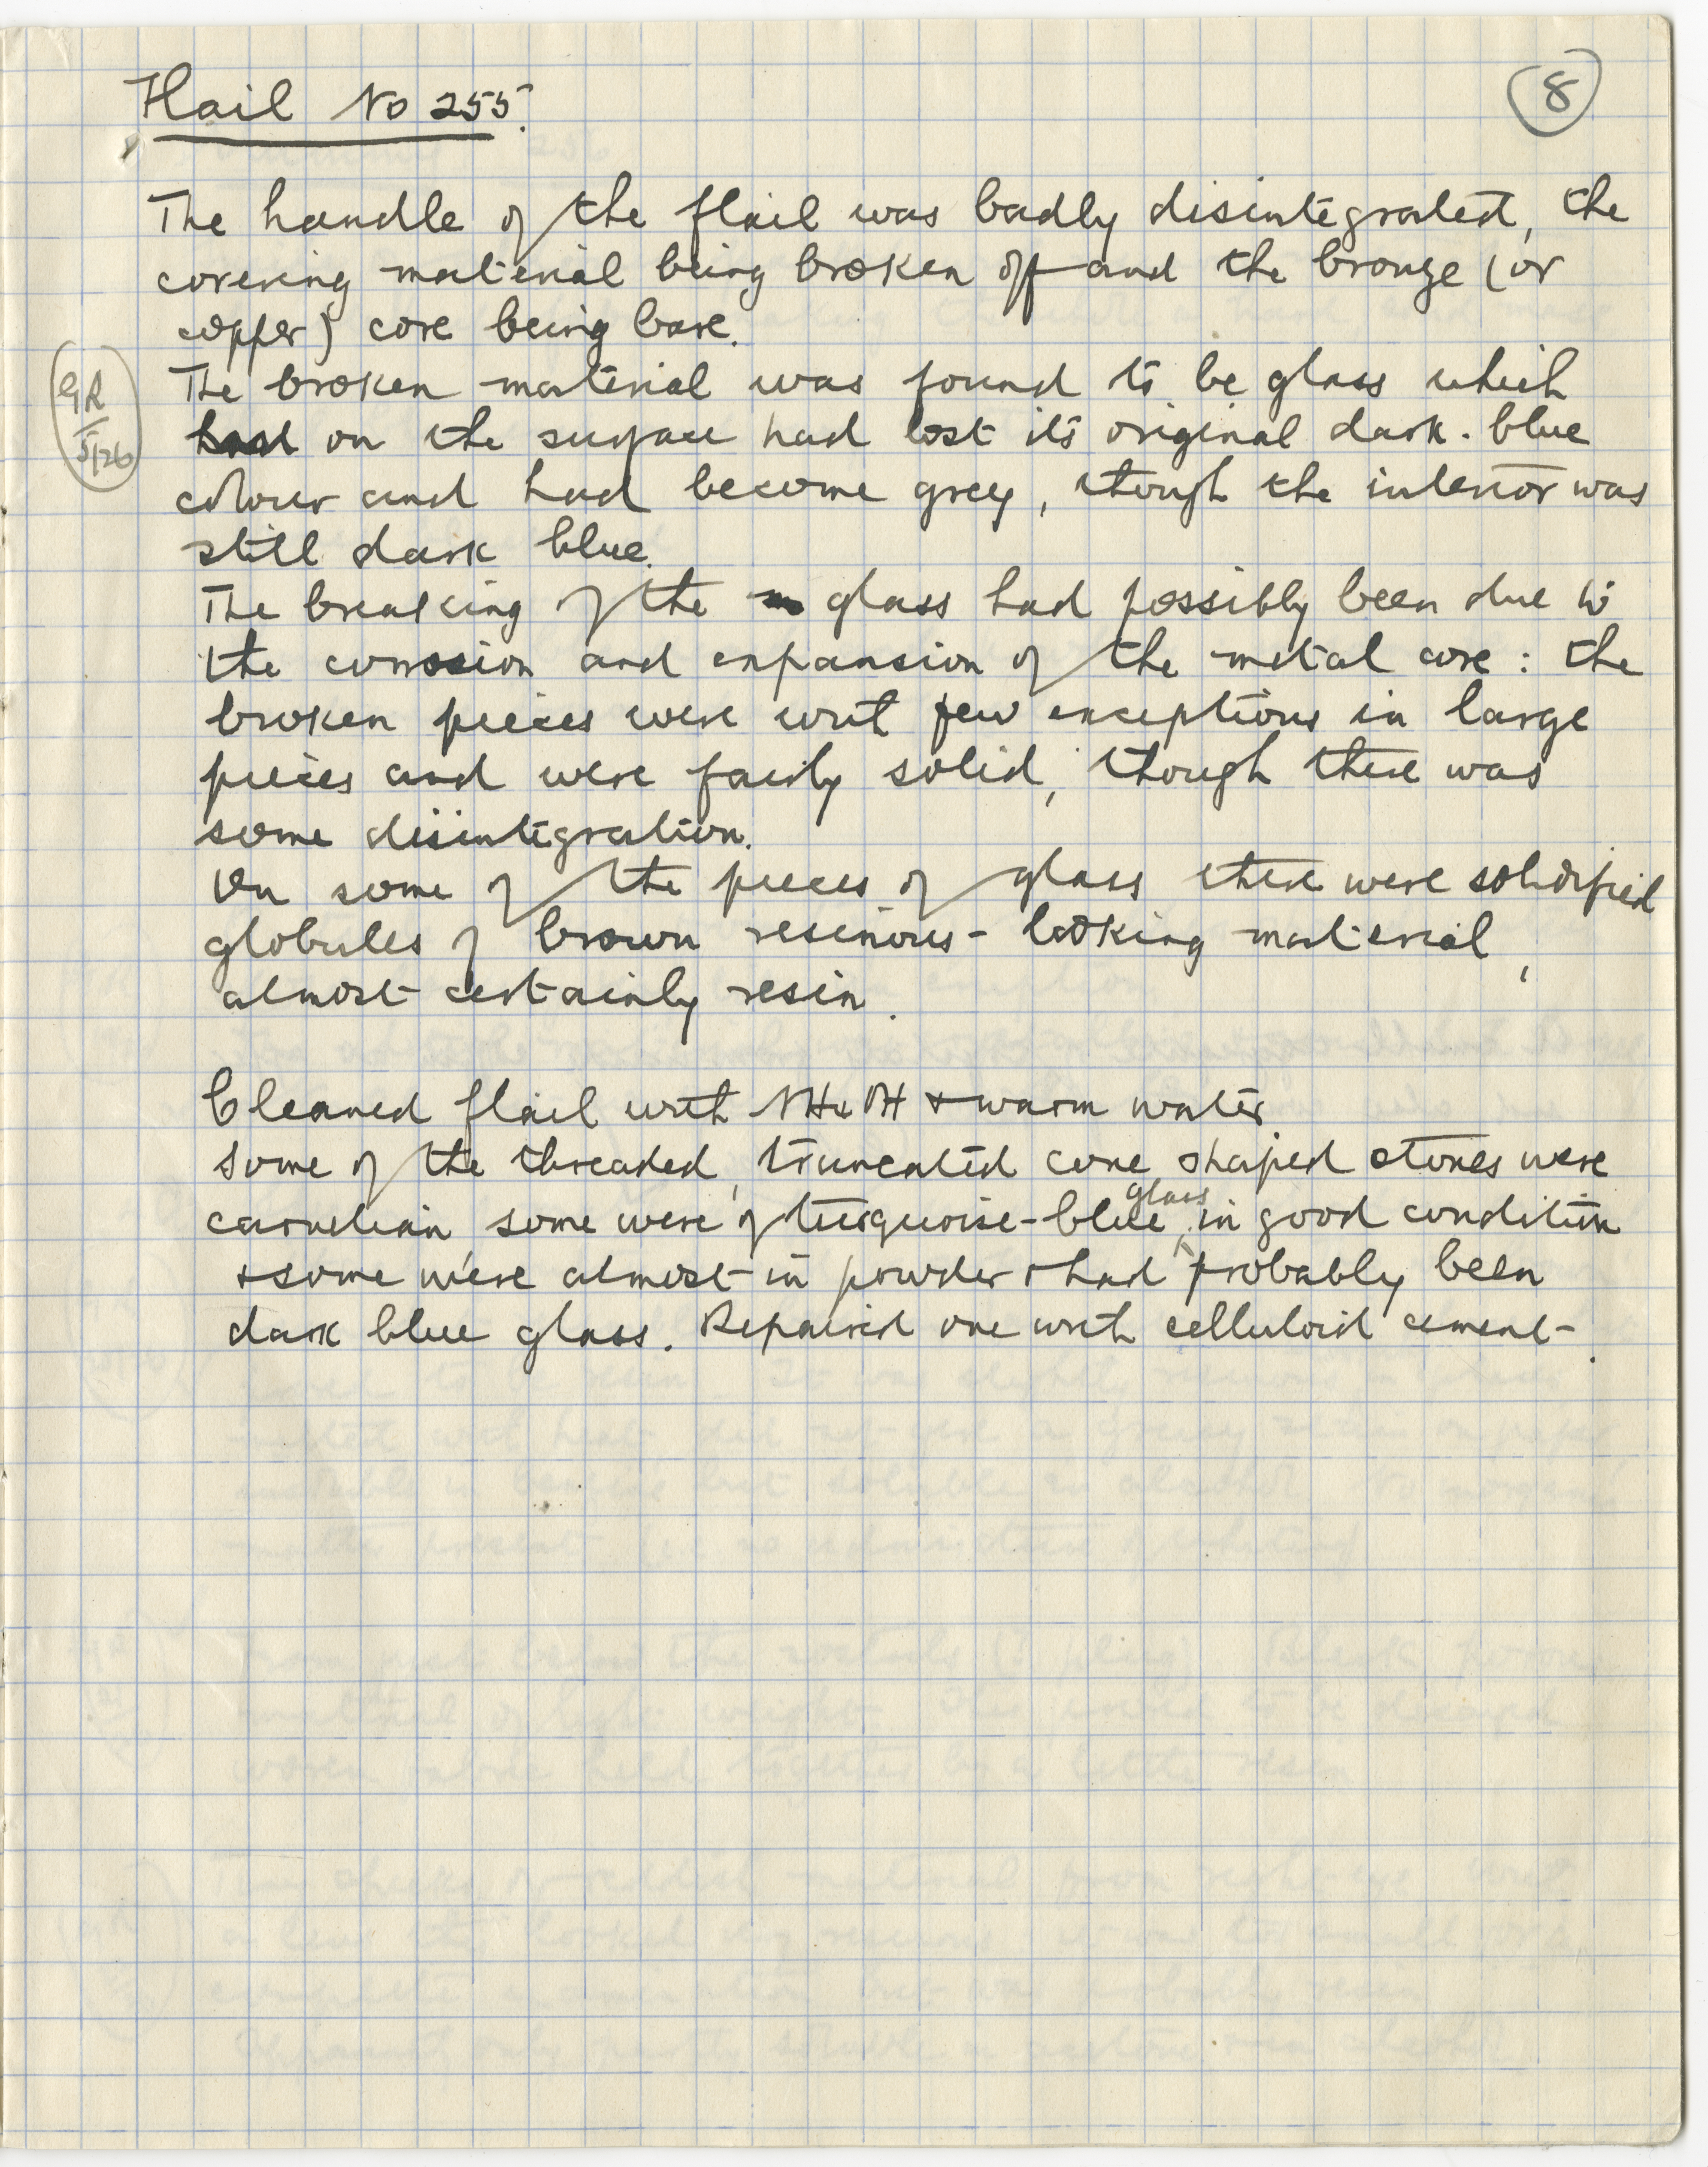 Flail No 255.
8
The handle of the flail was badly disintegrated, the
covering material being broken off and the bronze (or
copper) core being bare.
The broken material was found to be glass which
on the surface had lost its original dark-blue
colour and had become grey, though the interior was
still dark blue.
The breaking of the glass had possibly been due to
the corrosion and expansion of the metal core: the
broken pieces were with few exceptions in large
pieces and were fairly solid, though there was
some disintegration.
On some of the pieces of glass there were solidified
globules of brown resinous-looking material,
almost certainly resin.
Cleaned flail with NH4OH & warm water
Some of the threaded, truncated cone shaped stones were
carnelian, some were of turquoise-blue glass in good condition
& some were almost in powder & had probably been
dark blue glass. Repaired one with celluloid cement.
GR
5/26